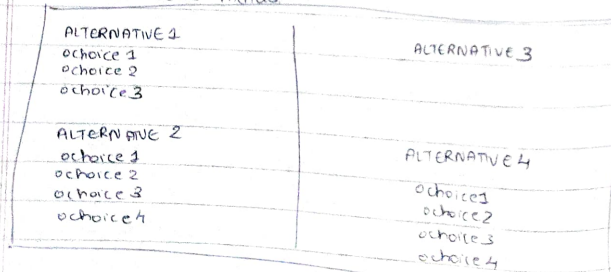 ALTERNATIVE 1
o choice 1
o choice 2
o choice 3
ALTERNATIVE 2
o choice 1
o choice 2
o choice 3
o choice 4
ALTERNATIVE 3
ALTERNATIVE 4
o choice 1
o choice 2
o choice 3
o choice 4